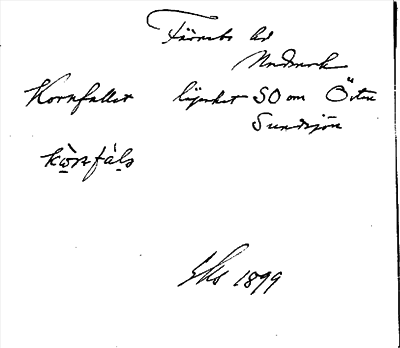 Färnebo hd
Nordmark
Kornfallet lägenhet SO om Östra
Sundsjön
kò̤rṇfál̤s
Eks 1899